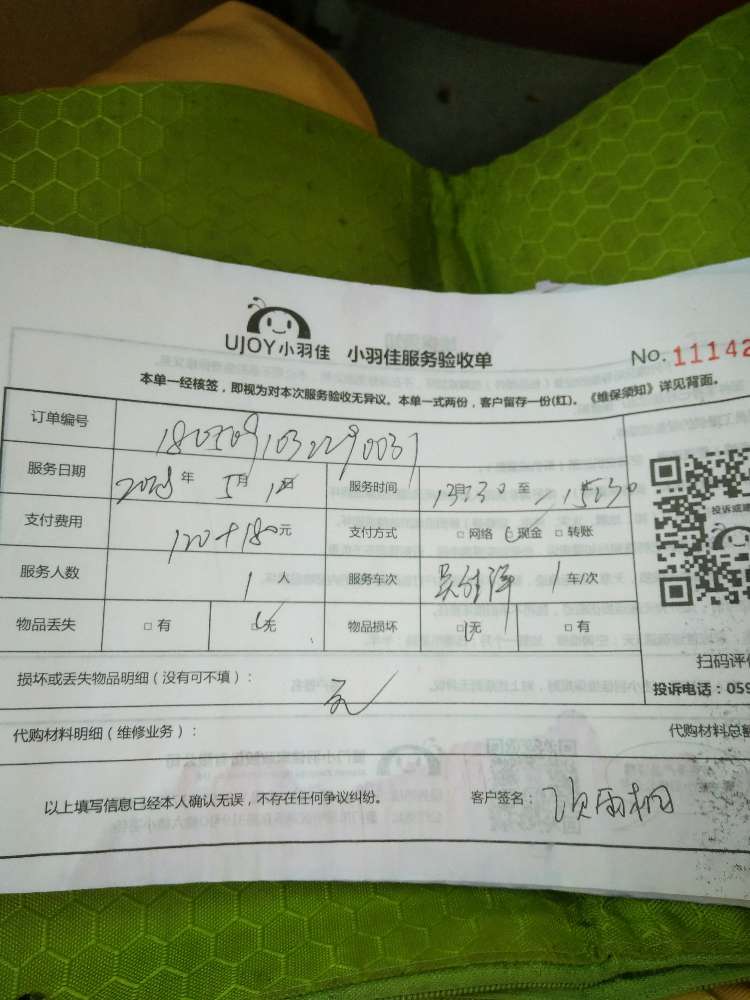 UJOY小羽佳 小羽佳服务验收单 No. 11142
本单一经核签，即视为对本次服务验收无异议。本单一式两份，客户留存一份(红)。《维保须知》详见背面。
订单编号 1805091032290037
服务日期 2018 年 5 月 12 日 服务时间 13:30 至 15:30
支付费用 120+180 元 支付方式 □ 网络 □ 现金 □ 转账
服务人数 1 人 服务车次 1 车/次
物品丢失 □ 有 □ 无 物品损坏 □ 无 □ 有
投诉或建
扫码评价
投诉电话：059
损坏或丢失物品明细（没有可不填）： 无
代购材料明细（维修业务）： 代购材料总额
以上填写信息已经本人确认无误，不存在任何争议纠纷。 客户签名：